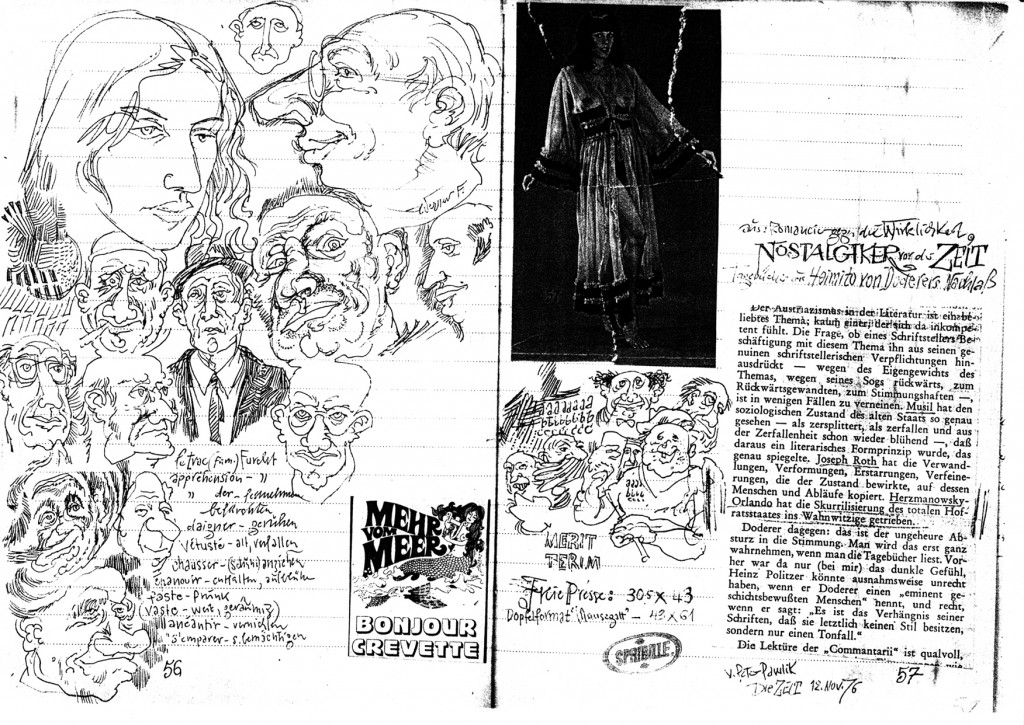 Werner F.
Furcht
appréhension - "
" der
daigner - geruhen
vétuste - alt, verfallen
chausser - (Schuh) anziehen
épanouir - entfalten,
faste - Prunk
vaste - weit, geräumig
anéantir - vernichten
s'emparer - s. bemächtigen
56
MEHR
VOM
MEER
BONJOUR
CREVETTE
MERIT
TERIM
Freie Presse: 305 x 43
Doppelformat - 43 x 61
SCRIBILLE
aus: Romancier gegen die Wirklichkeit,
NOSTALGIKER vor der ZEIT
Tagebücher aus Heimito von Doderers Nachlaß
Der Austriazismus in der Literatur ist ein be-
liebtes Thema; kaum einer, der sich da inkompe-
tent fühlt. Die Frage, ob eines Schriftstellers Be-
schäftigung mit diesem Thema ihn aus seinen ge-
nuinen schriftstellerischen Verpflichtungen hin-
ausdrückt — wegen des Eigengewichts des
Themas, wegen seines Sogs rückwärts, zum
Rückwärtsgewandten, zum Stimmungshaften —,
ist in wenigen Fällen zu verneinen. Musil hat den
soziologischen Zustand des alten Staats so genau
gesehen — als zersplittert, als zerfallen und aus
der Zerfallenheit schon wieder blühend —, daß
daraus ein literarisches Formprinzip wurde, das
genau spiegelte. Joseph Roth hat die Verwand-
lungen, Verformungen, Erstarrungen, Verfeine-
rungen, die der Zustand bewirkte, auf dessen
Menschen und Abläufe kopiert. Herzmanowsky-
Orlando hat die Skurrilisierung des totalen Hof-
ratsstaates ins Wahnwitzige getrieben.
Doderer dagegen: das ist der ungeheure Ab-
sturz in die Stimmung. Man wird das erst ganz
wahrnehmen, wenn man die Tagebücher liest. Vor-
her war da nur (bei mir) das dunkle Gefühl,
Heinz Politzer könnte ausnahmsweise unrecht
haben, wenn er Doderer einen „eminent ge-
schichtsbewußten Menschen" nennt, und recht,
wenn er sagt: „Es ist das Verhängnis seiner
Schriften, daß sie letztlich keinen Stil besitzen,
sondern nur einen Tonfall."
Die Lektüre der „Commentarii" ist qualvoll,
v. Peter Pawlik
Die ZEIT 12. Nov. 76
57